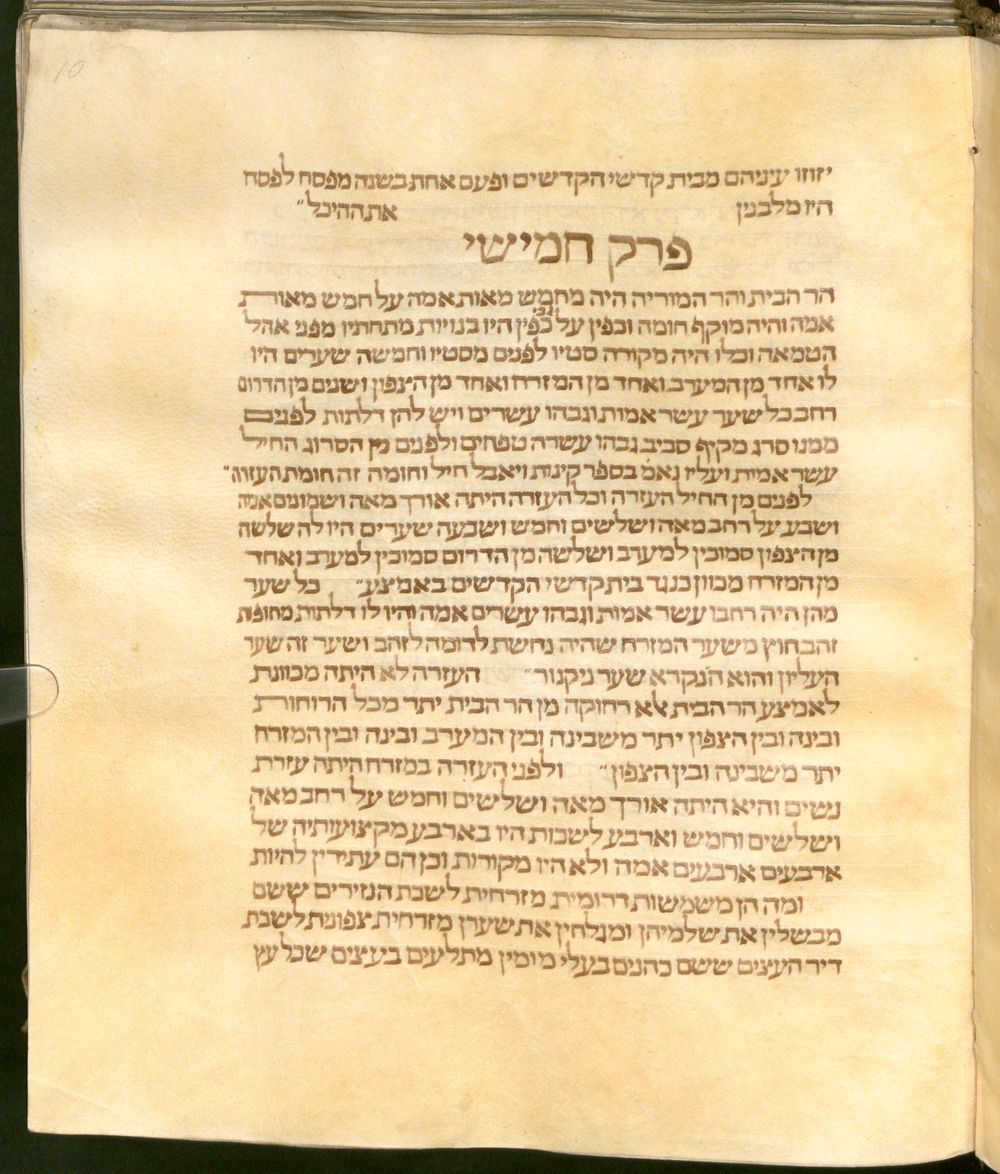 10
יזוזו עיניהם מבית קדשי הקדשים ופעם אחת בשנה מפסח לפסח
היו מלבנין את ההיכל״
פרק חמישי
הר הבית והר המוריה היה מחמש מאות אמה על חמש מאורת
אמה והיה מוקף חומה וכפין על גבי כפין היו בנויות מתחתיו מפני אהל
הטמאה וכלו היה מקורה סטיו לפנים מסטיו וחמשה שערים היו
לו אחד מן המערב ואחד מן המזרח ואחד מן הצפון ושנים מן הדרום
רחב כל שער עשר אמות וגבהו עשרים ויש להן דלתות לפנים
ממנו סרג מקיף סביב גבהו עשרה טפחים ולפנים מן הסרוג החיל
עשר אמות ועליו נאמ׳ בספר קינות ויאבל חיל וחומה זה חומת העזרה״
לפנים מן החיל העזרה וכל העזרה היתה אורך מאה ושמונים אמה
ושבע על רחב מאה ושלשים וחמש ושבעה שערים היו לה שלשה
מן הצפון סמוכין למערב ושלשה מן הדרום סמוכין למערב ואחד
מן המזרח מכוון כנגד בית קדשי הקדשים באמצע״ כל שער
מהן היה רחבו עשר אמות וגבהו עשרים אמה והיו לו דלתות מחופות
זהב חוץ משער המזרח שהיה נחשת לדומה לזהב ושער זה שער
העליון והוא הנקרא שער ניקנור״ העזרה לא היתה מכוונת
לאמצע הר הבית אלא רחוקה מן הר הבית יתר מכל הרוחורת
ובינה ובין הצפון יתר משבינה ובין המערב ובינה ובין המזרח
יתר משבינה ובין הצפון״ ולפני העזרה במזרח היתה עזרת
נשים והיא היתה אורך מאה ושלשים וחמש על רחב מאה
ושלשים וחמש וארבע לשכות היו בארבע מקצועותיה של
ארבעים ארבעים אמה ולא היו מקורות וכן הם עתידין להיות
ומה הן משמשות דרומית מזרחית לשכת הנזירים ששם
מבשלין את שלמיהן ומגלחין את שערן מזרחית צפונית לשכת
דיר העצים ששם כהנים בעלי מומין מתלעים בעצים שכל עץ